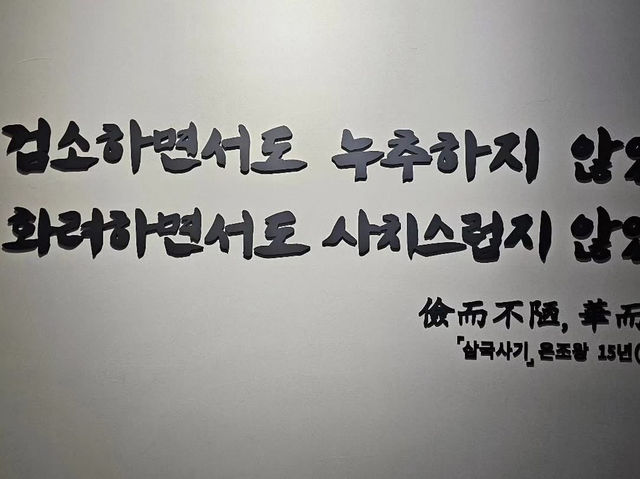 검소하면서도 누추하지 않
화려하면서도 사치스럽지 않
儉而不陋, 華而
「삼국사기」 온조왕 15년(